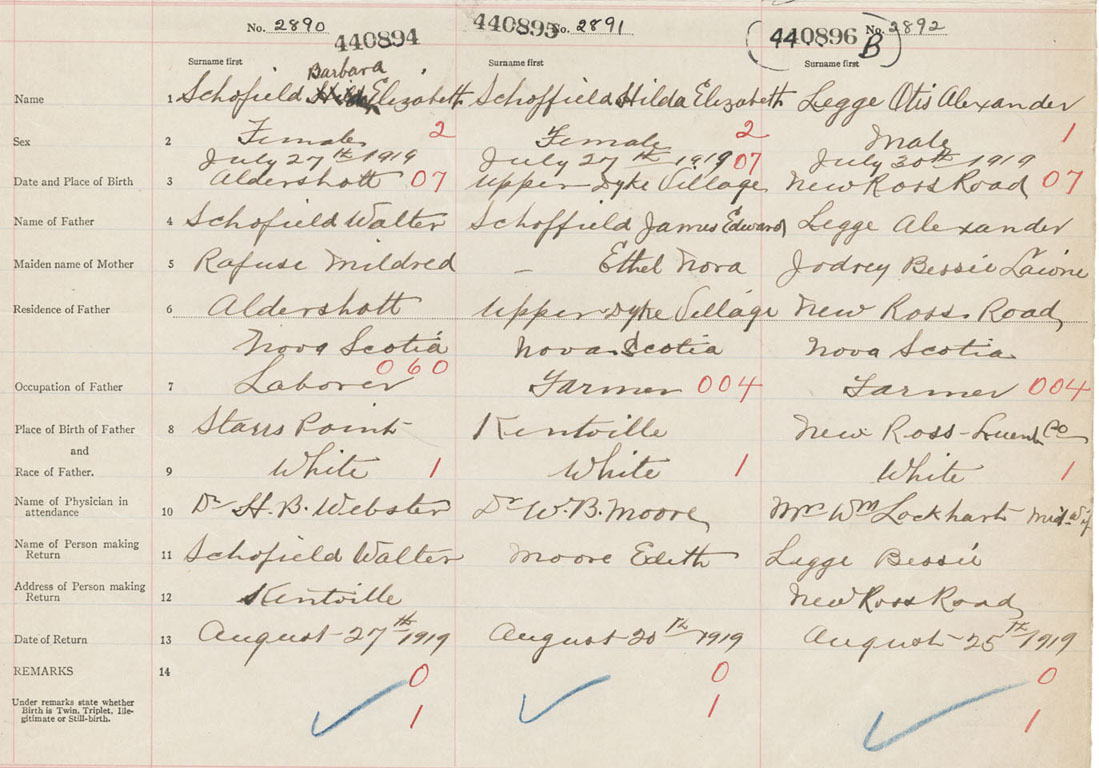 No. 2890
440894
440895 No. 2891
440896 No. 2892
B
Surname first
Surname first
Surname first
Barbara
Name 1 Schofield Elizabeth Schoffield Hilda Elizabeth Legge Otis Alexander
Sex 2 Female 2 Female 2 Male 1
July 27th 1919 July 27th 1919 07 July 30th 1919
Date and Place of Birth 3 Aldershott 07 Upper Dyke Village New Ross Road 07
Name of Father 4 Schofield Walter Schoffield James Edward Legge Alexander
Maiden name of Mother 5 Rafuse Mildred – Ethel Nora Jodrey Bessie
Residence of Father 6 Aldershott Upper Dyke Village New Ross Road
Nova Scotia Nova Scotia Nova Scotia
060
Occupation of Father 7 Laborer Farmer 004 Farmer 004
Place of Birth of Father 8 Starrs Point Kentville New Ross - Lunen Co
and
Race of Father. 9 White 1 White 1 White 1
Name of Physician in
attendance 10 Dr H. B. Webster Dr W. B. Moore Mrs Wm Lockhart Midwif
Name of Person making
Return 11 Schofield Walter Moore Edith Legge Bessie
Address of Person making
Return 12 Kentville New Ross Road
Date of Return 13 August 27th 1919 August 20th 1919 August 25th 1919
REMARKS 14 0 0 0
Under remarks state whether
Birth is Twin, Triplet, Ille-
gitimate or Still-birth.
1 1 1